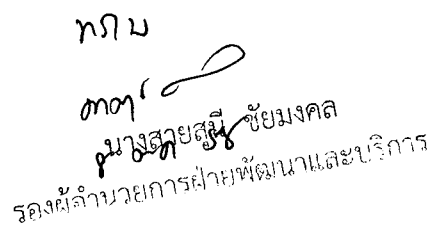 ทราบ
นางสายสุนี ชัยมงคล
รองผู้อำนวยการฝ่ายพัฒนาและบริการ